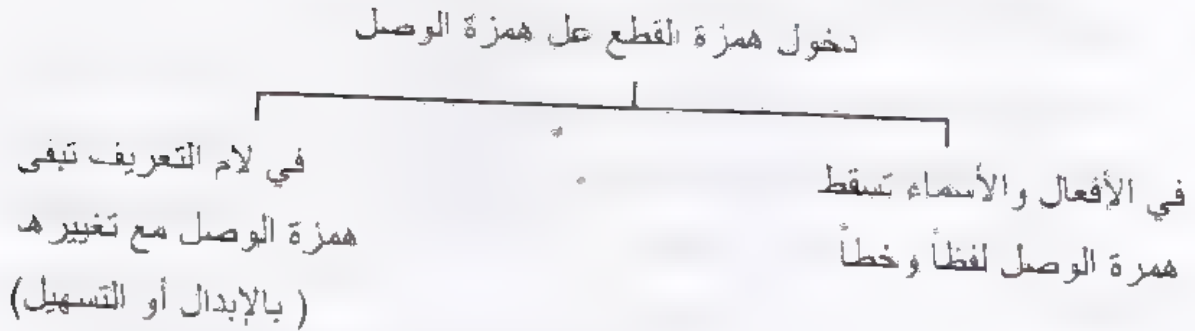 دخول همزة القطع عل همزة الوصل
في الأفعال والأسماء تسقط
همرة الوصل لفظاً وخطاً
في لام التعريف تبفى
همزة الوصل مع تغييرهـ
( بالإبدال أو التسهيل)